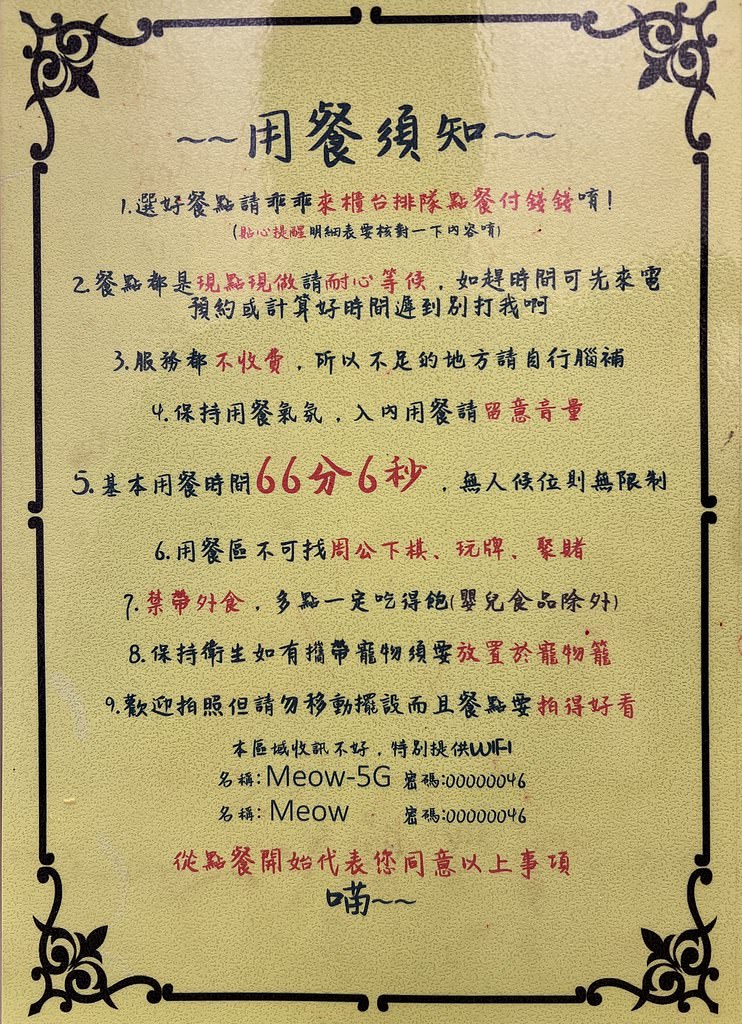 ~~用餐須知~~
1.選好餐點請乖乖來櫃台排隊點餐付錢錢唷!
(貼心提醒明細表要核對一下內容唷)
2.餐點都是現點現做請耐心等候，如趕時間可先來電
預約或計算好時間遲到別打我啊
3.服務都不收費，所以不足的地方請自行腦補
4.保持用餐氣氛，入內用餐請留意音量
5.基本用餐時間66分6秒，無人候位則無限制
6.用餐區不可找周公下棋、玩牌、聚賭
7.禁帶外食，多點一定吃得飽(嬰兒食品除外)
8.保持衛生如有攜帶寵物須要放置於寵物籠
9.歡迎拍照但請勿移動擺設而且餐點要拍得好看
本區域收訊不好，特別提供WIFI
名稱:Meow-5G 密碼:00000046
名稱:Meow 密碼:00000046
從點餐開始代表您同意以上事項
喵~~